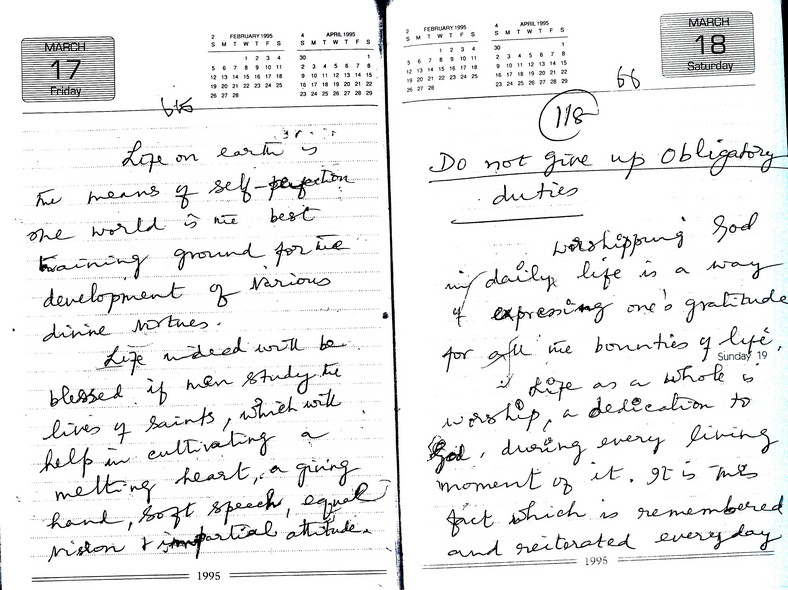 MARCH
17
Friday
2 FEBRUARY 1995
S M T W T F S
1 2 3 4
5 6 7 8 9 10 11
12 13 14 15 16 17 18
19 20 21 22 23 24 25
26 27 28
4 APRIL 1995
S M T W T F S
30 1
2 3 4 5 6 7 8
9 10 11 12 13 14 15
16 17 18 19 20 21 22
23 24 25 26 27 28 29
Life on earth is
the means of self-perfection
the world is the best
training ground for the
development of various
divine virtues.
Life indeed will be
blessed if men study the
lives of saints, which will
help in cultivating a
melting heart, a giving
hand, soft speech, equal
vision & impartial attitude.
1995
2 FEBRUARY 1995
S M T W T F S
1 2 3 4
5 6 7 8 9 10 11
12 13 14 15 16 17 18
19 20 21 22 23 24 25
26 27 28
4 APRIL 1995
S M T W T F S
30 1
2 3 4 5 6 7 8
9 10 11 12 13 14 15
16 17 18 19 20 21 22
23 24 25 26 27 28 29
MARCH
18
Saturday
66
118
Do not give up Obligatory
duties
Worshipping God
in daily life is a way
of expressing one's gratitude
for all the bounties of life.
Sunday 19
Life as a whole is
worship, a dedication to
God, during every living
moment of it. It is this
fact which is remembered
and reiterated everyday
1995